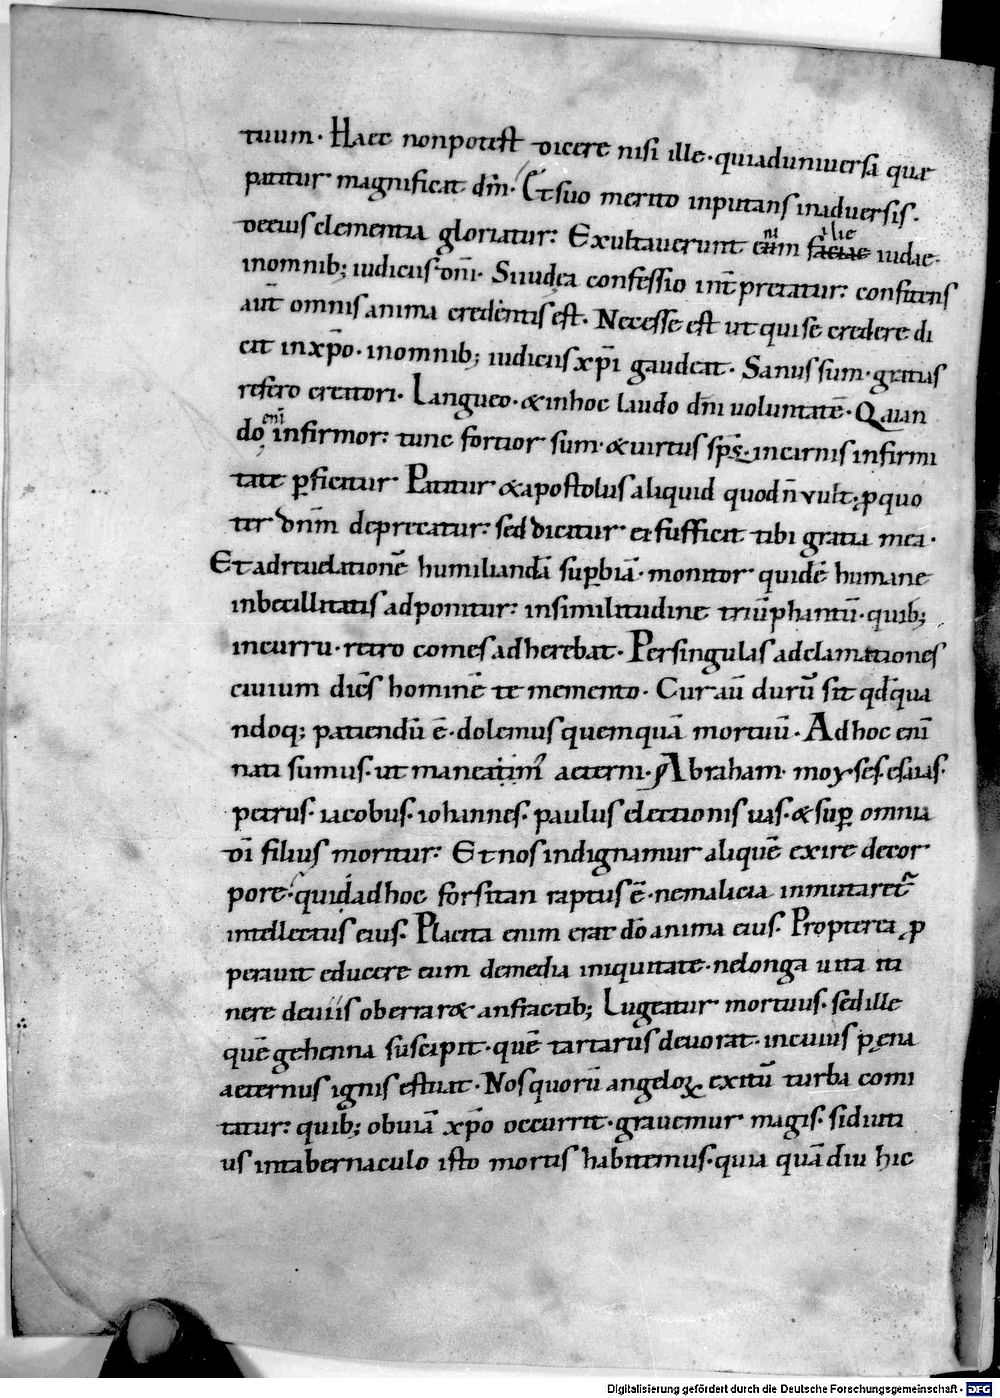 tuum. Haec nonpotest dicere nisi ille. quiaduniuersa quae
patitur magnificat dn̄m. Et suo merito inputans inaduersis.
deeius clementia gloriatur: Exultauerunt enim filie iudae.
inomnib; iudiciis dn̄i. Si iudea confessio int̄pretatur: confitens
aut̄ omnis anima credentis est. Necesse est ut qui se credere di
cit in xp̄o. inomnib; iudiciis xp̄i gaudeat. Sanus sum. gratus
refero creatori. Langueo. & inhoc laudo dn̄i uoluntatē. Quan
do enī infirmor: tunc fortior sum. & uirtus sp̄s. incarnis infirmi
tate ꝑficitur Patitur & apostolus aliquid quod n̄ vult. ꝓ quo
ter dn̄m deprecatur: sed dicitur ei sufficit tibi gratia mea.
Et adreuelationē humiliandā suꝑbiā. monitor quidē humane
inbecillitatis adponitur: insimilitudine triūphantiū. quib;
incurru. retro comes adherebat. Per singulas adclamationes
ciuium dicēs hominē te memento. Cur aū durū sit qd̄ qua
ndoq; patiendū ē. dolemus quemquā mortuū. Ad hoc enī
nati sumus. ut maneam̄ aeterni. Abraham. moyses. esaias.
petrus. iacobus. iohannes. paulus electionis uas. & suꝑ omnia
dī filius moritur: Et nos indignamur aliquē exire decor
pore. qui adhoc forsitan raptus ē. nemalicia inmutaret
intellectus eius. Placita enim erat dō anima eius. Propterea ꝓ
perauit educere eum demedia iniquitate. nelonga uita iti
nere deuiis oberrar& anfractib; Lugeatur mortuus. sed ille
quē gehenna suscipit. quē tartarus deuorat. incuius pęna
aeternus ignis estuat. Nos quorū angeloꝝ exitū turba comi
tatur: quib; obuiā xp̄o occurrit. grauemur magis. si diuti
us intabernaculo isto mortis habitemus. quia quādiu hic
Digitalisierung gefördert durch die Deutsche Forschungsgemeinschaft - DFG